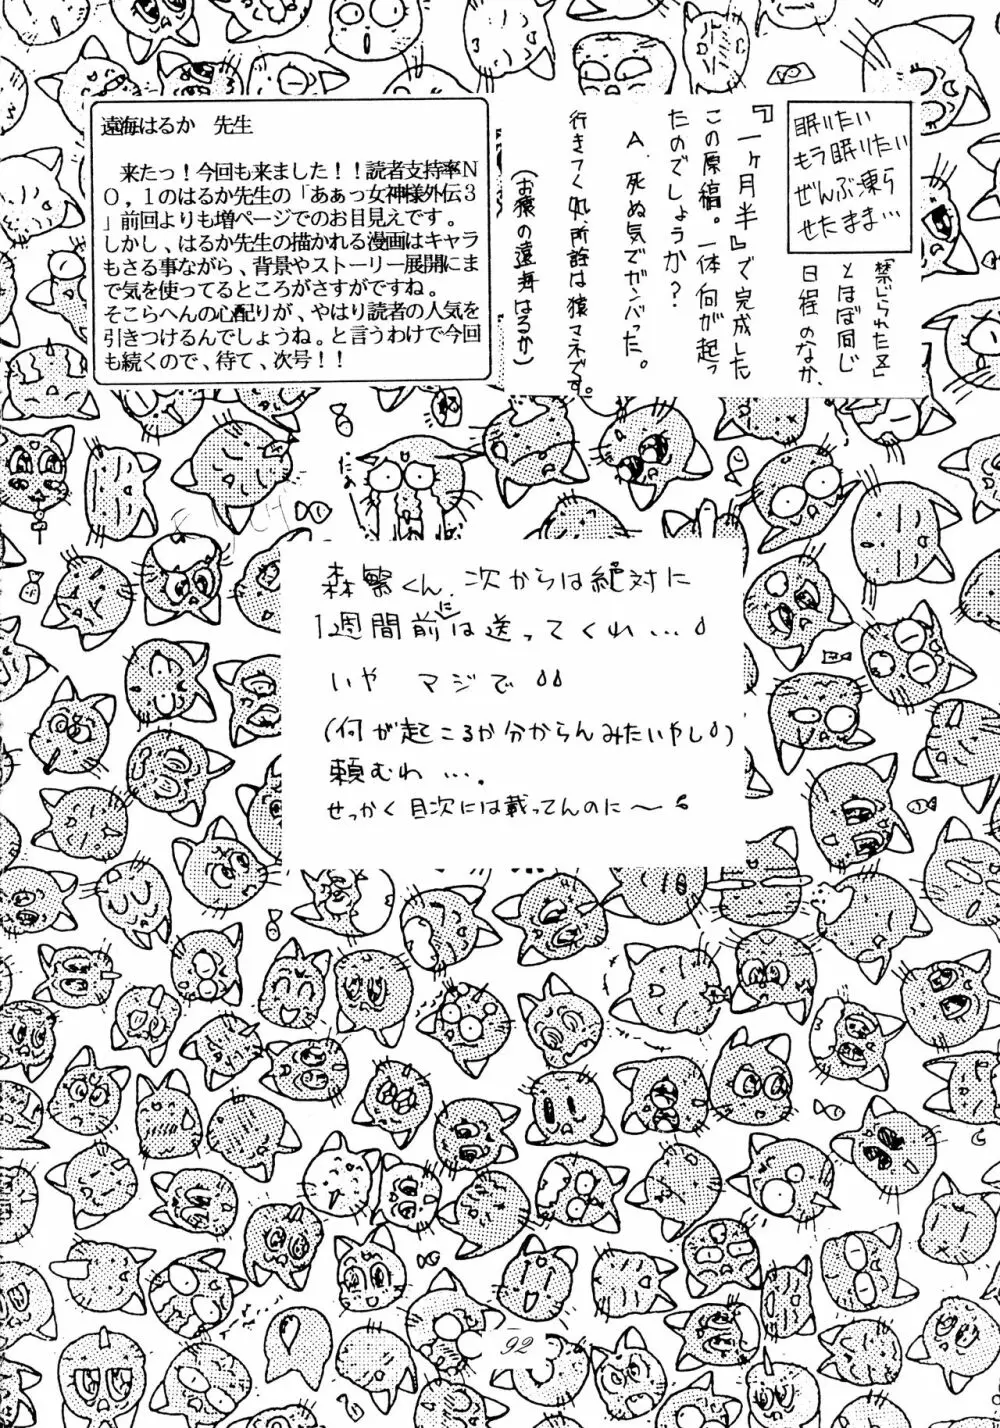 眠りたい
もう眠りたい
ぜんぶ凍ら
せたまま…
「禁じられた区」
とほぼ同じ
日程のなか、
『一ヶ月半』で完成した
この原稿。一体何が起っ
たのでしょうか？
A．死ぬ気でガンバった。
行きてくれ、所詮は猿マネです。
(お猿の遠海はるか)
遠海はるか　先生
　来たっ！今回も来ました！！読者支持率Ｎ
Ｏ，１のはるか先生の「あぁっ女神様外伝３
」前回よりも増ページでのお目見えです。
しかし、はるか先生の描かれる漫画はキャラ
もさる事ながら、背景やストーリー展開にま
で気を使ってるところがさすがですね。
そこらへんの心配りが、やはり読者の人気を
引きつけるんでしょうね。と言うわけで今回
も続くので、待て、次号！！
森繁くん、次からは絶対に
1週間前には送ってくれ…
いや　マジで
(何が起こるか分からんみたいやし)
頼むわ…。
せっかく目次には載ってんのに〜
92